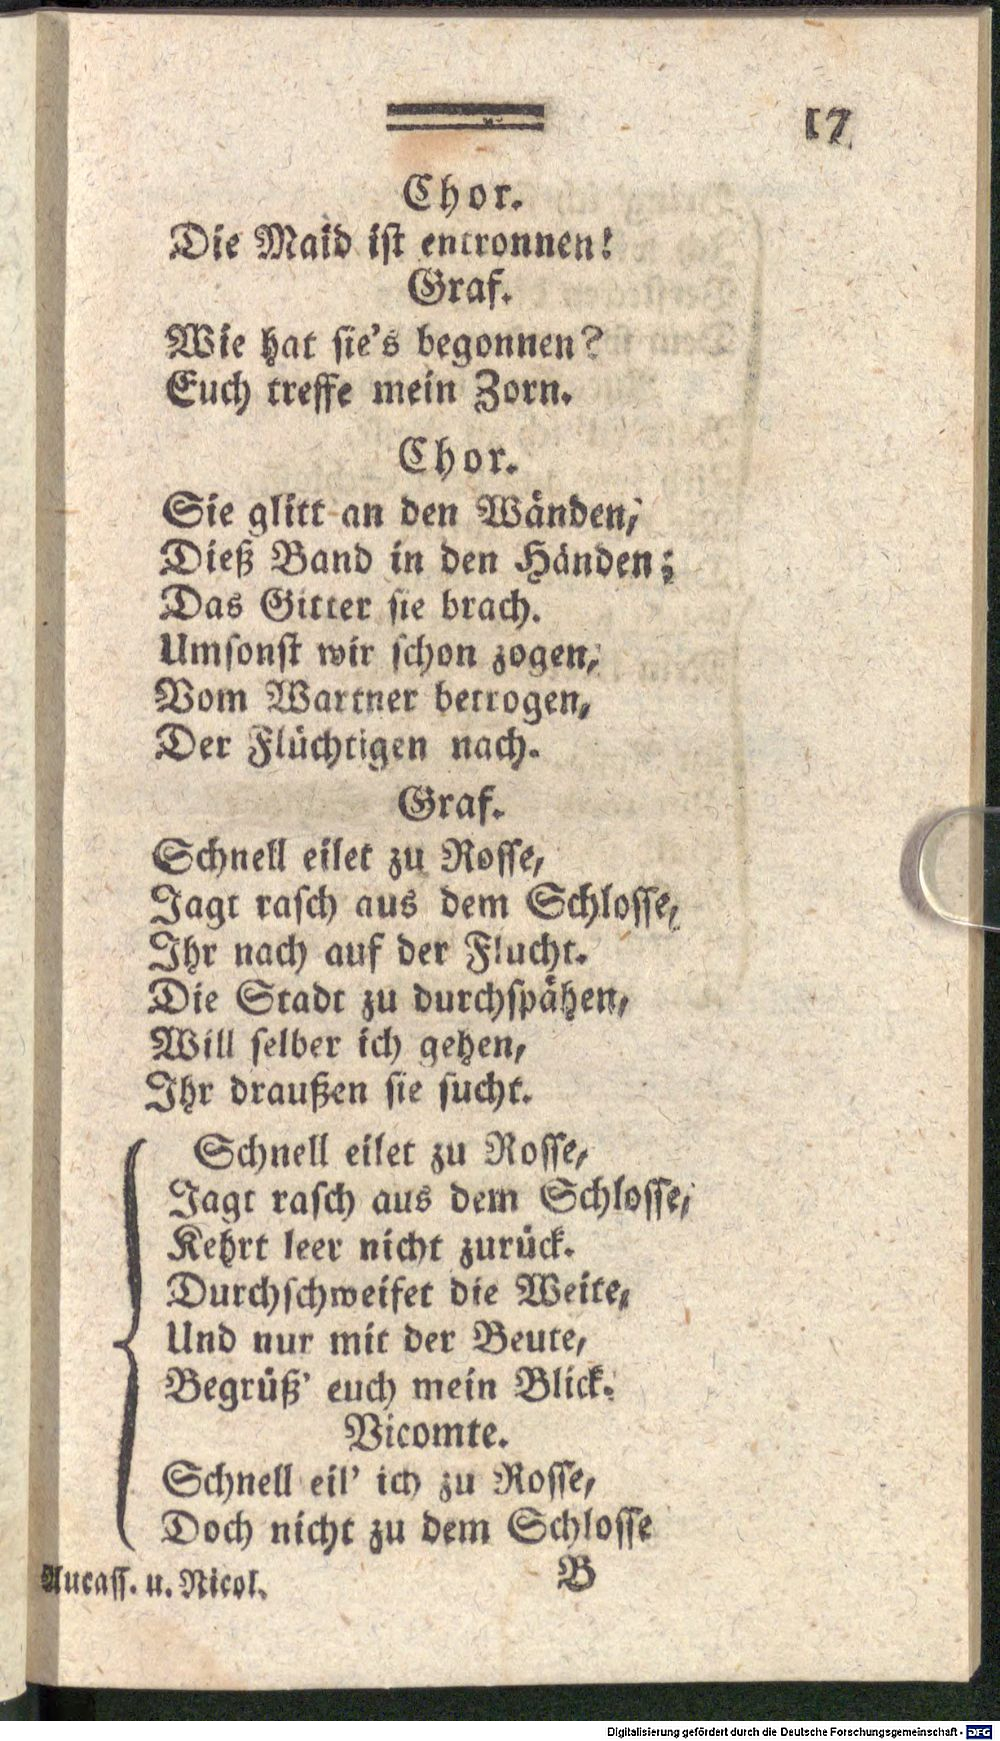 17
Chor.
Die Maid ist entronnen!
Graf.
Wie hat sie's begonnen?
Euch treffe mein Zorn.
Chor.
Sie glitt an den Wänden,
Dieß Band in den Händen;
Das Gitter sie brach.
Umsonst wir schon zogen,
Vom Wartner betrogen,
Der Flüchtigen nach.
Graf.
Schnell eilet zu Rosse,
Jagt rasch aus dem Schlosse,
Ihr nach auf der Flucht.
Die Stadt zu durchspähen,
Will selber ich gehen,
Ihr draußen sie sucht.
Schnell eilet zu Rosse,
Jagt rasch aus dem Schlosse,
Kehrt leer nicht zurück.
Durchschweifet die Weite,
Und nur mit der Beute,
Begrüß' euch mein Blick.
Vicomte.
Schnell eil' ich zu Rosse,
Doch nicht zu dem Schlosse
Aucass. u. Nicol. B
Digitalisierung gefördert durch die Deutsche Forschungsgemeinschaft - DFG